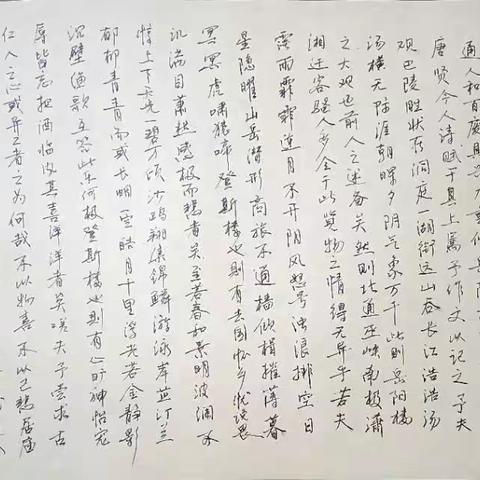 通人和百废具
唐贤今人诗赋于其上属予作文以记之予夫
观巴陵胜状在洞庭一湖衔远山吞长江浩浩汤
汤横无际涯朝晖夕阴气象万千此则岳阳楼
之大观也前人之述备矣然则北通巫峡南极潇
湘迁客骚人多会于此览物之情得无异乎若夫
霪雨霏霏连月不开阴风怒号浊浪排空日
星隐曜山岳潜形商旅不通樯倾楫摧薄暮
冥冥虎啸猿啼登斯楼也则有去国怀乡忧谗畏
讥满目萧然感极而悲者矣至若春和景明波澜不
惊上下天光一碧万顷沙鸥翔集锦鳞游泳岸芷汀兰
郁郁青青而或长烟一空皓月千里浮光若金静影
沉璧渔歌互答此乐何极登斯楼也则有心旷神怡宠
辱皆忘把酒临风其喜洋洋者矣嗟夫予尝求古
仁人之心或异二者之为何哉不以物喜不以己悲居庙